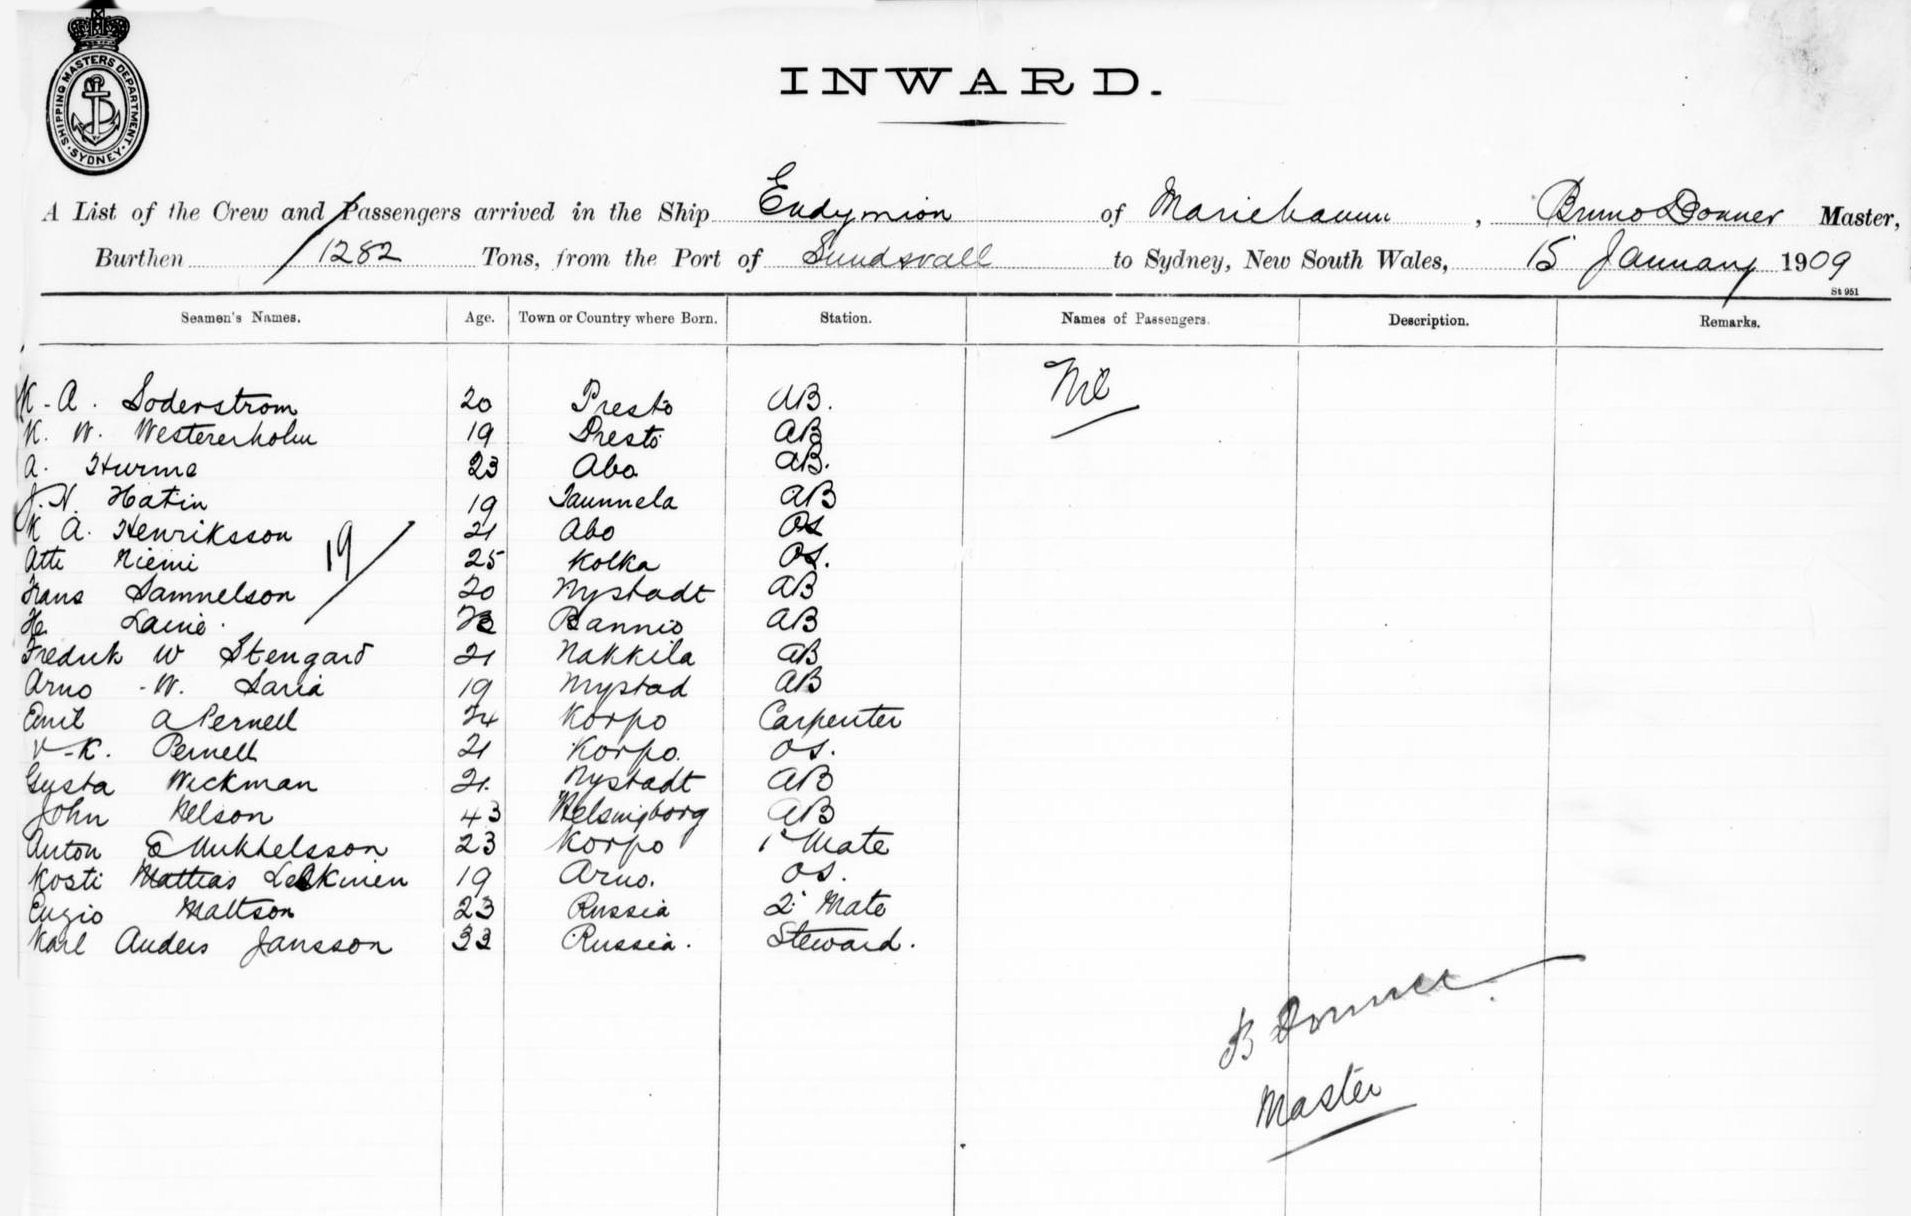 SHIPPING MASTERS DEPARTMENT
SYDNEY
INWARD.
A List of the Crew and Passengers arrived in the Ship Endymion of Mariehamn, Bruno Donner Master,
Burthen 1282 Tons, from the Port of Sundsvall to Sydney, New South Wales, 15 January 1909
St 951
Seamen's Names. Age. Town or Country where Born. Station. Names of Passengers. Description. Remarks.
Nil
K. A. Soderstrom 20 Presto AB.
K. W. Westererholm 19 Presto AB
A. Hurme 23 Abo AB.
J. N. Hatin 19 Taunnela AB
K A. Henriksson 21 Abo OS
19
Atti Niemi 25 Kolka OS.
Frans Samuelson 20 Nystadt AB
He Laine AB
Fredrik W Stengard 21 Nakkila AB
Arno W. Saria 19 Nystad AB
Emil A Pernell 24 Korpo Carpenter
V-K. Pernell 21 Korpo. OS.
Gusta Wickman 21. Nystadt AB
John Nelson 43 Helsingborg AB
Anton E Mikhelsson 23 Korpo 1 Mate
Kosti Mattias 19 Arno. OS.
Mattson 23 Russia 2 Mate
Karl Anders Jansson 33 Russia. Steward.
B Donner
Master